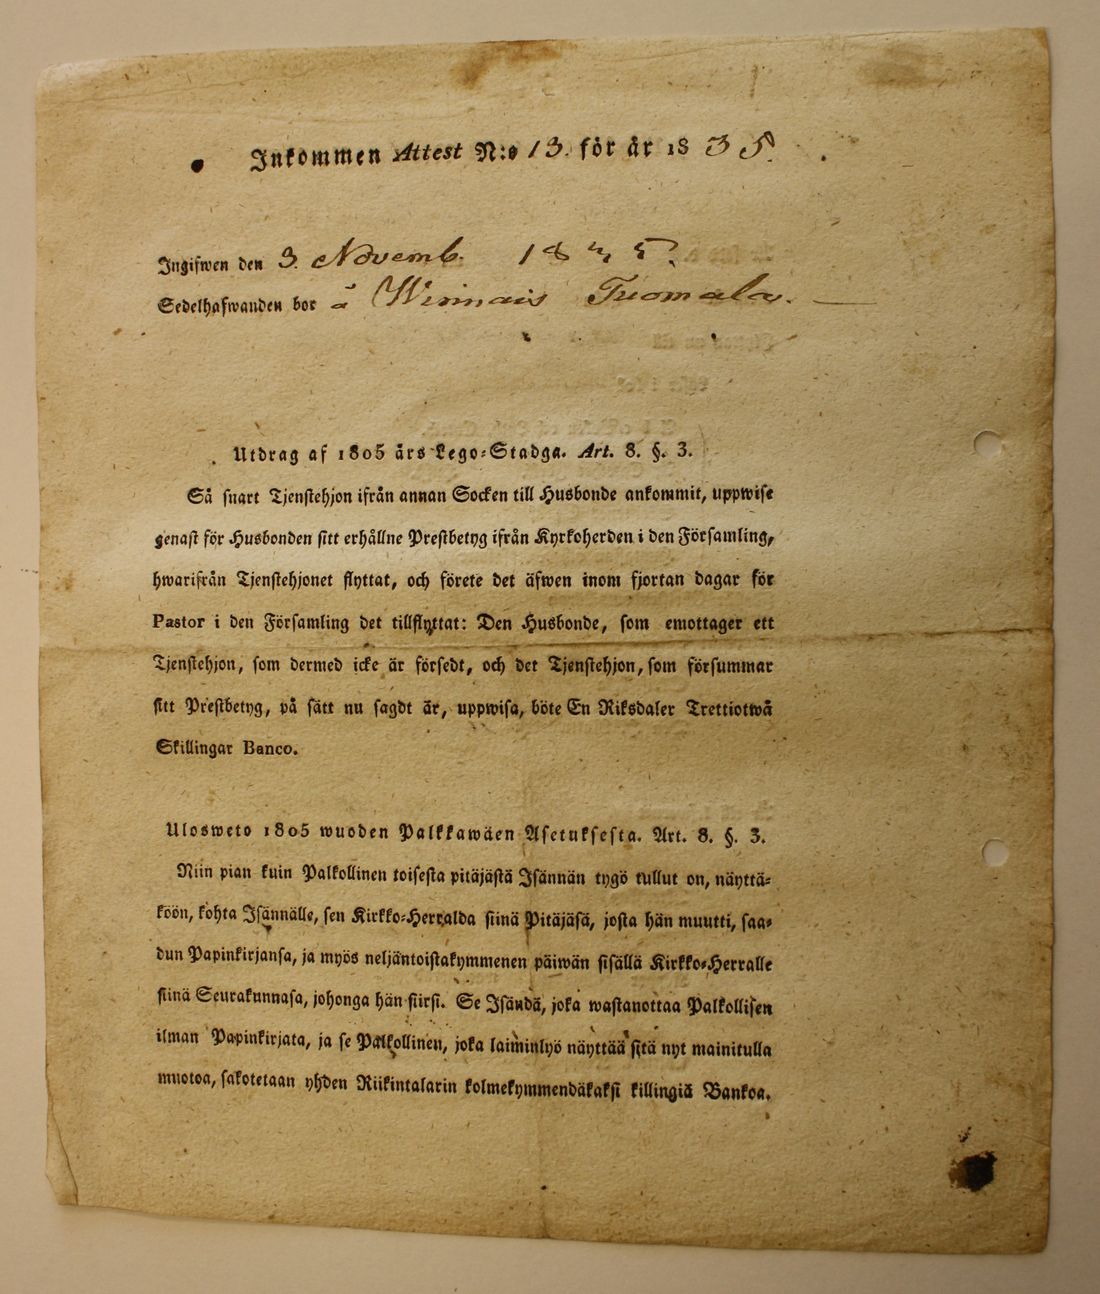 Inkommen Attest N:o 13. för år 1835.
Ingifwen den 3. Novemb. 1835.
Sedelhafwanden bor å Winnais Tuomala.
Utdrag af 1805 års Lego-Stadga. Art. 8. §. 3.
Så snart Tjenstehjon ifrån annan Socken till Husbonde ankommit, uppwise
genast för Husbonden sitt erhållne Prestbetyg ifrån Kyrkoherden i den Församling,
hwarifrån Tjenstehjonet flyttat, och förete det äfwen inom fjortan dagar för
Pastor i den Församling det tillflyttat: Den Husbonde, som emottager ett
Tjenstehjon, som dermed icke är försedt, och det Tjenstehjon, som försummar
sitt Prestbetyg, på sätt nu sagdt är, uppwisa, böte En Riksdaler Trettiotwå
Skillingar Banco.
Ulosweto 1805 wuoden Palkkawäen Asetuksesta. Art. 8. §. 3.
Niin pian kuin Palkollinen toisesta pitäjästä Isännän tygö tullut on, näyttä-
köön, kohta Isännälle, sen Kirkko-Herralda siinä Pitäjäsä, josta hän muutti, saa-
dun Papinkirjansa, ja myös neljäntoistakymmenen päiwän sisällä Kirkko-Herralle
siinä Seurakunnasa, johonga hän siirsi. Se Isändä, joka wastanottaa Palkollisen
ilman Papinkirjata, ja se Palkollinen, joka laiminlyö näyttää sitä nyt mainitulla
muotoa, sakotetaan yhden Riikintalarin kolmekymmendäkaksi killingiä Bankoa.